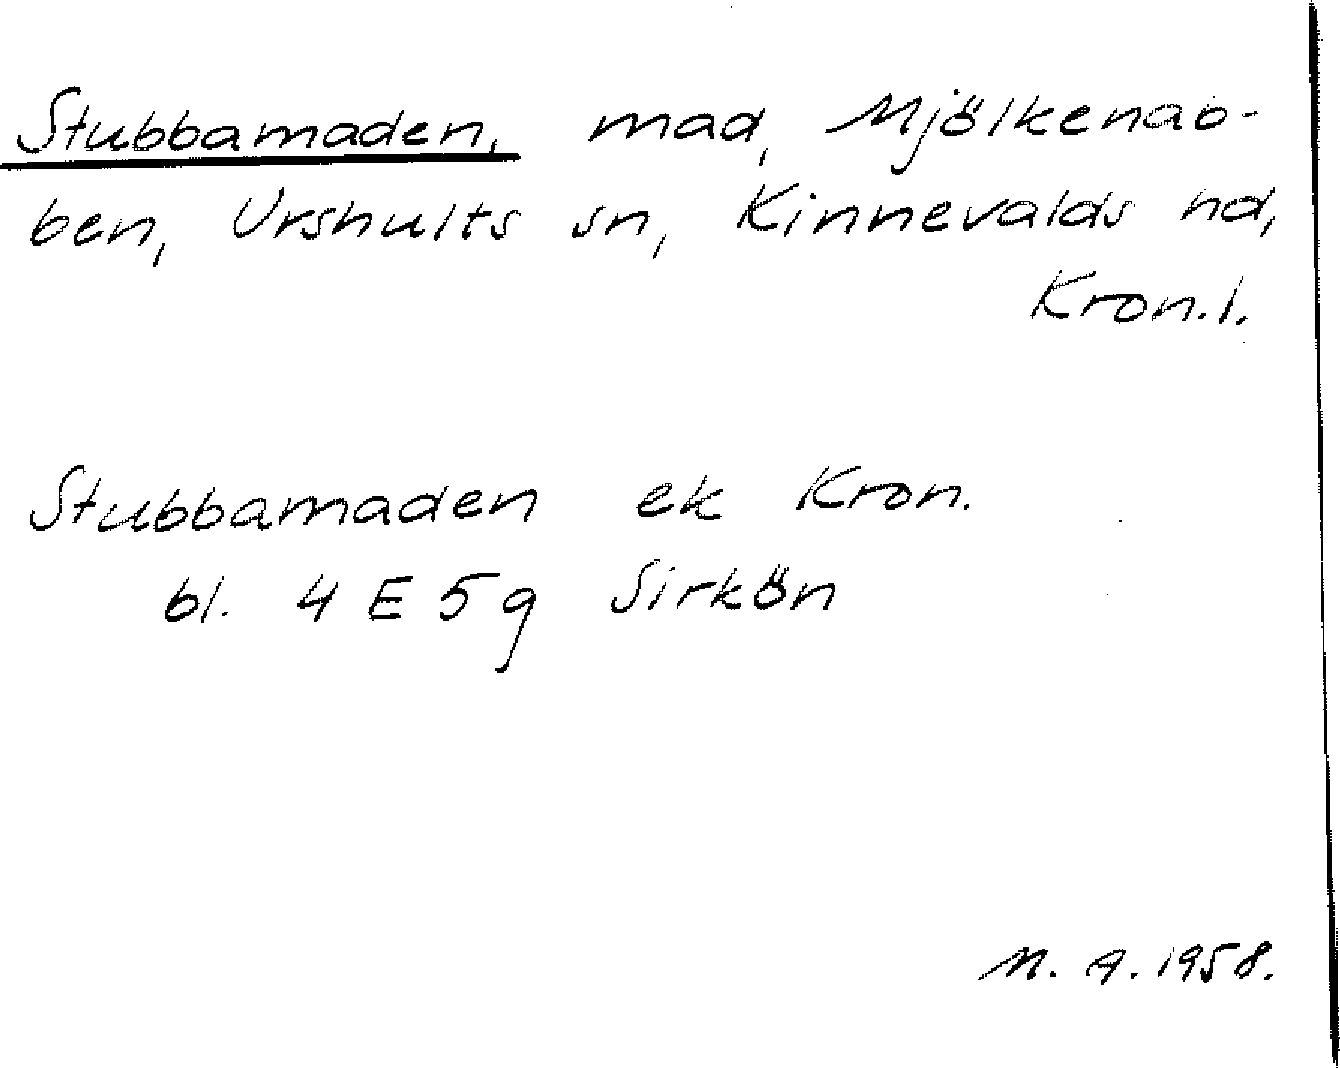 Stubbamaden, mad, Mjölkenab-
ben, Urshults sn, Kinnevalds hd,
Kron.l.
Stubbamaden ek Kron.
bl. 4 E 5 g Sirkön
M. A. 1958.